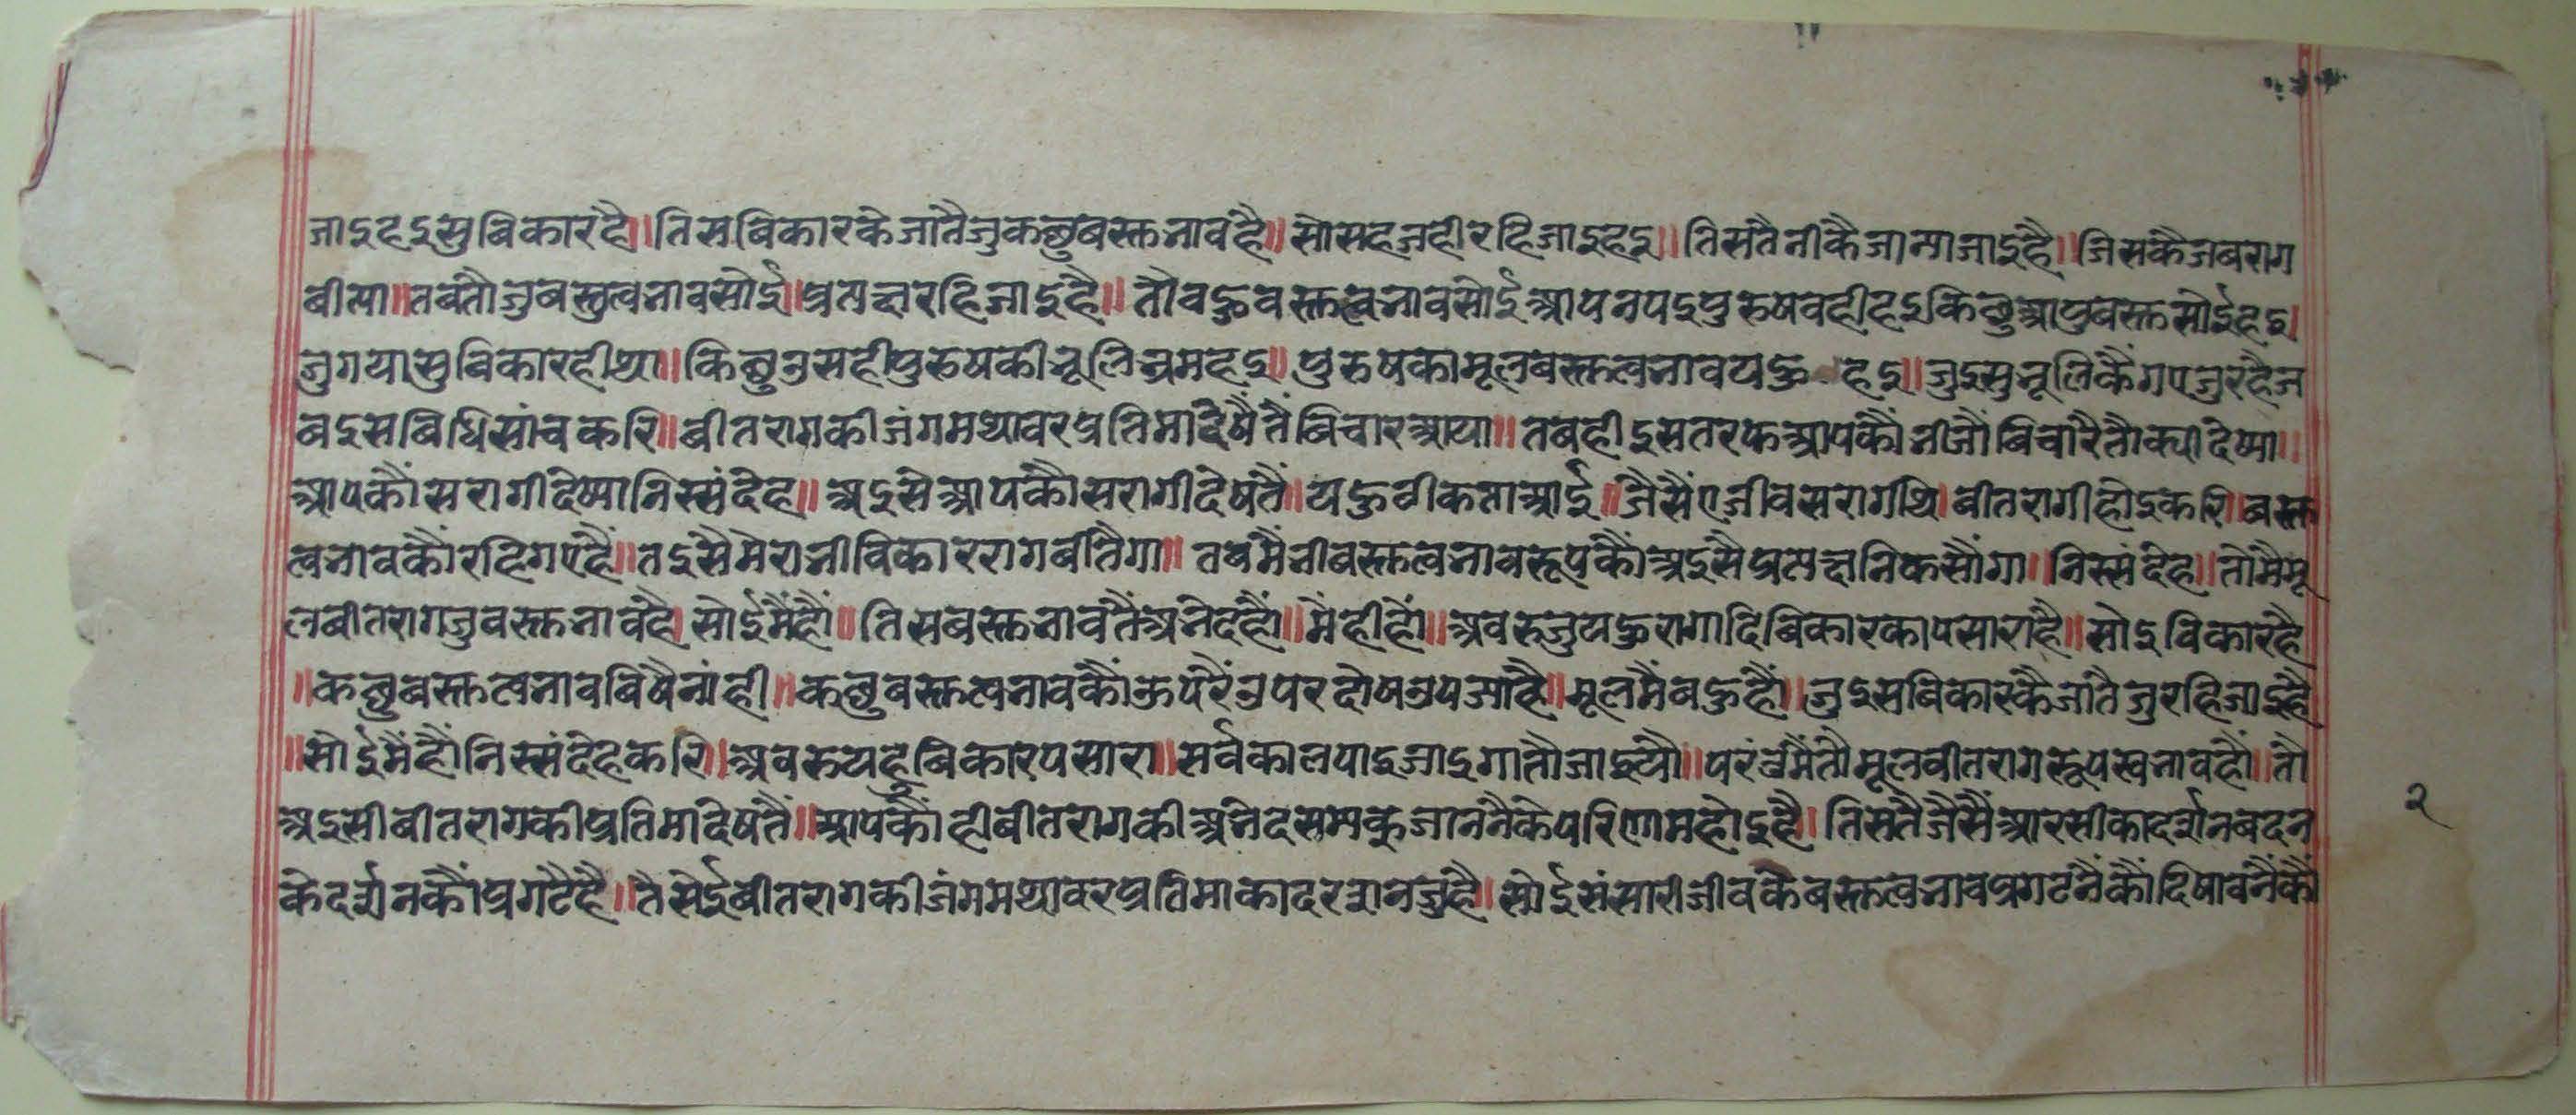 जाइहइसुबिकारहै॥तिसबिकारकैजातैजुकछुबस्तभावहै॥सोसहजहीरहिजाइहइ॥तिसतैनीकैजान्याजाइहै॥जिसकैजबराग
बीत्या॥तबतौजुबस्तुत्वभावसोई॥प्रतक्षरहिजाइहै॥तौवहुवस्तत्वभावसोईआपनपइपुरुषवहीहइकिछुआपुबस्तसोईहइ॥
जुगयासुबिकारहीथा॥किछुउसहीपुरुषकीभूलिभ्रमहइ॥पुरुषकामूलबस्तत्वभावयहु हइ॥जुइसुभूलिकैंगएजुरहैज
बइसबिधिसांचकरि॥बीतरागकीजंगमथावरप्रतिमादेषैतैंबिचारआया॥तबहीइसतरफआपकौंभीजौंबिचारैतौक्यादेष्या॥
आपकौंसरागीदेष्यानिस्संदेह॥अइसेआपकौसरागीदेषतैं॥यहुवीकताआई॥जैसैंएजीवसरागीथे॥बीतरागीहोइकरि॥बस्त
त्वभावकौंरहिगएहैं॥तइसैमेराभीविकाररागबीतैगा॥तबमैंभीबस्तत्वभावरूपकौंअइसैप्रतक्षनिकसौंगा॥निस्संदेह॥तोमैमू
लबीतरागजुवस्तभावहै॥सोईमैंहौं॥तिसबस्तभावतैंअभेदहौं॥मैंहीहौं॥अवरुजुयहुरागादिबिकारकापसाराहै॥सोइविकारहै
॥कछुबस्तत्वभावबिषैनांही॥कछुबस्तत्वभावकौंऊपरैंउपरदोषउपज्याहै॥मूलमैंबहुहौं॥जुइसबिकारकैजातैजुरहिजाइहै
॥सोईमैंहौंनिस्संदेहकरि॥अवरुयहुबिकारपसारा॥सर्वकालपाइजाइगातौजाइयौ॥परंतुमैंतौमूलवीतरागरूपस्वभावहौं॥तौ
अइसीबीतरागकीप्रतिमादेषतैं॥आपकौंहीबीतरागकीअभेदसम्यकूजाननैकेपरिणामहोइहै॥तिसतैजैसैंआरसीकादर्शनबदन
केदर्शनकौंप्रगटैहै॥तैसेईबीतरागकीजंगमथावरप्रतिमाकादरशनजुहै॥सोईसंसारीजीवकैबस्तत्वभावप्रगटनैंकौंदिषावनैंकौं
२